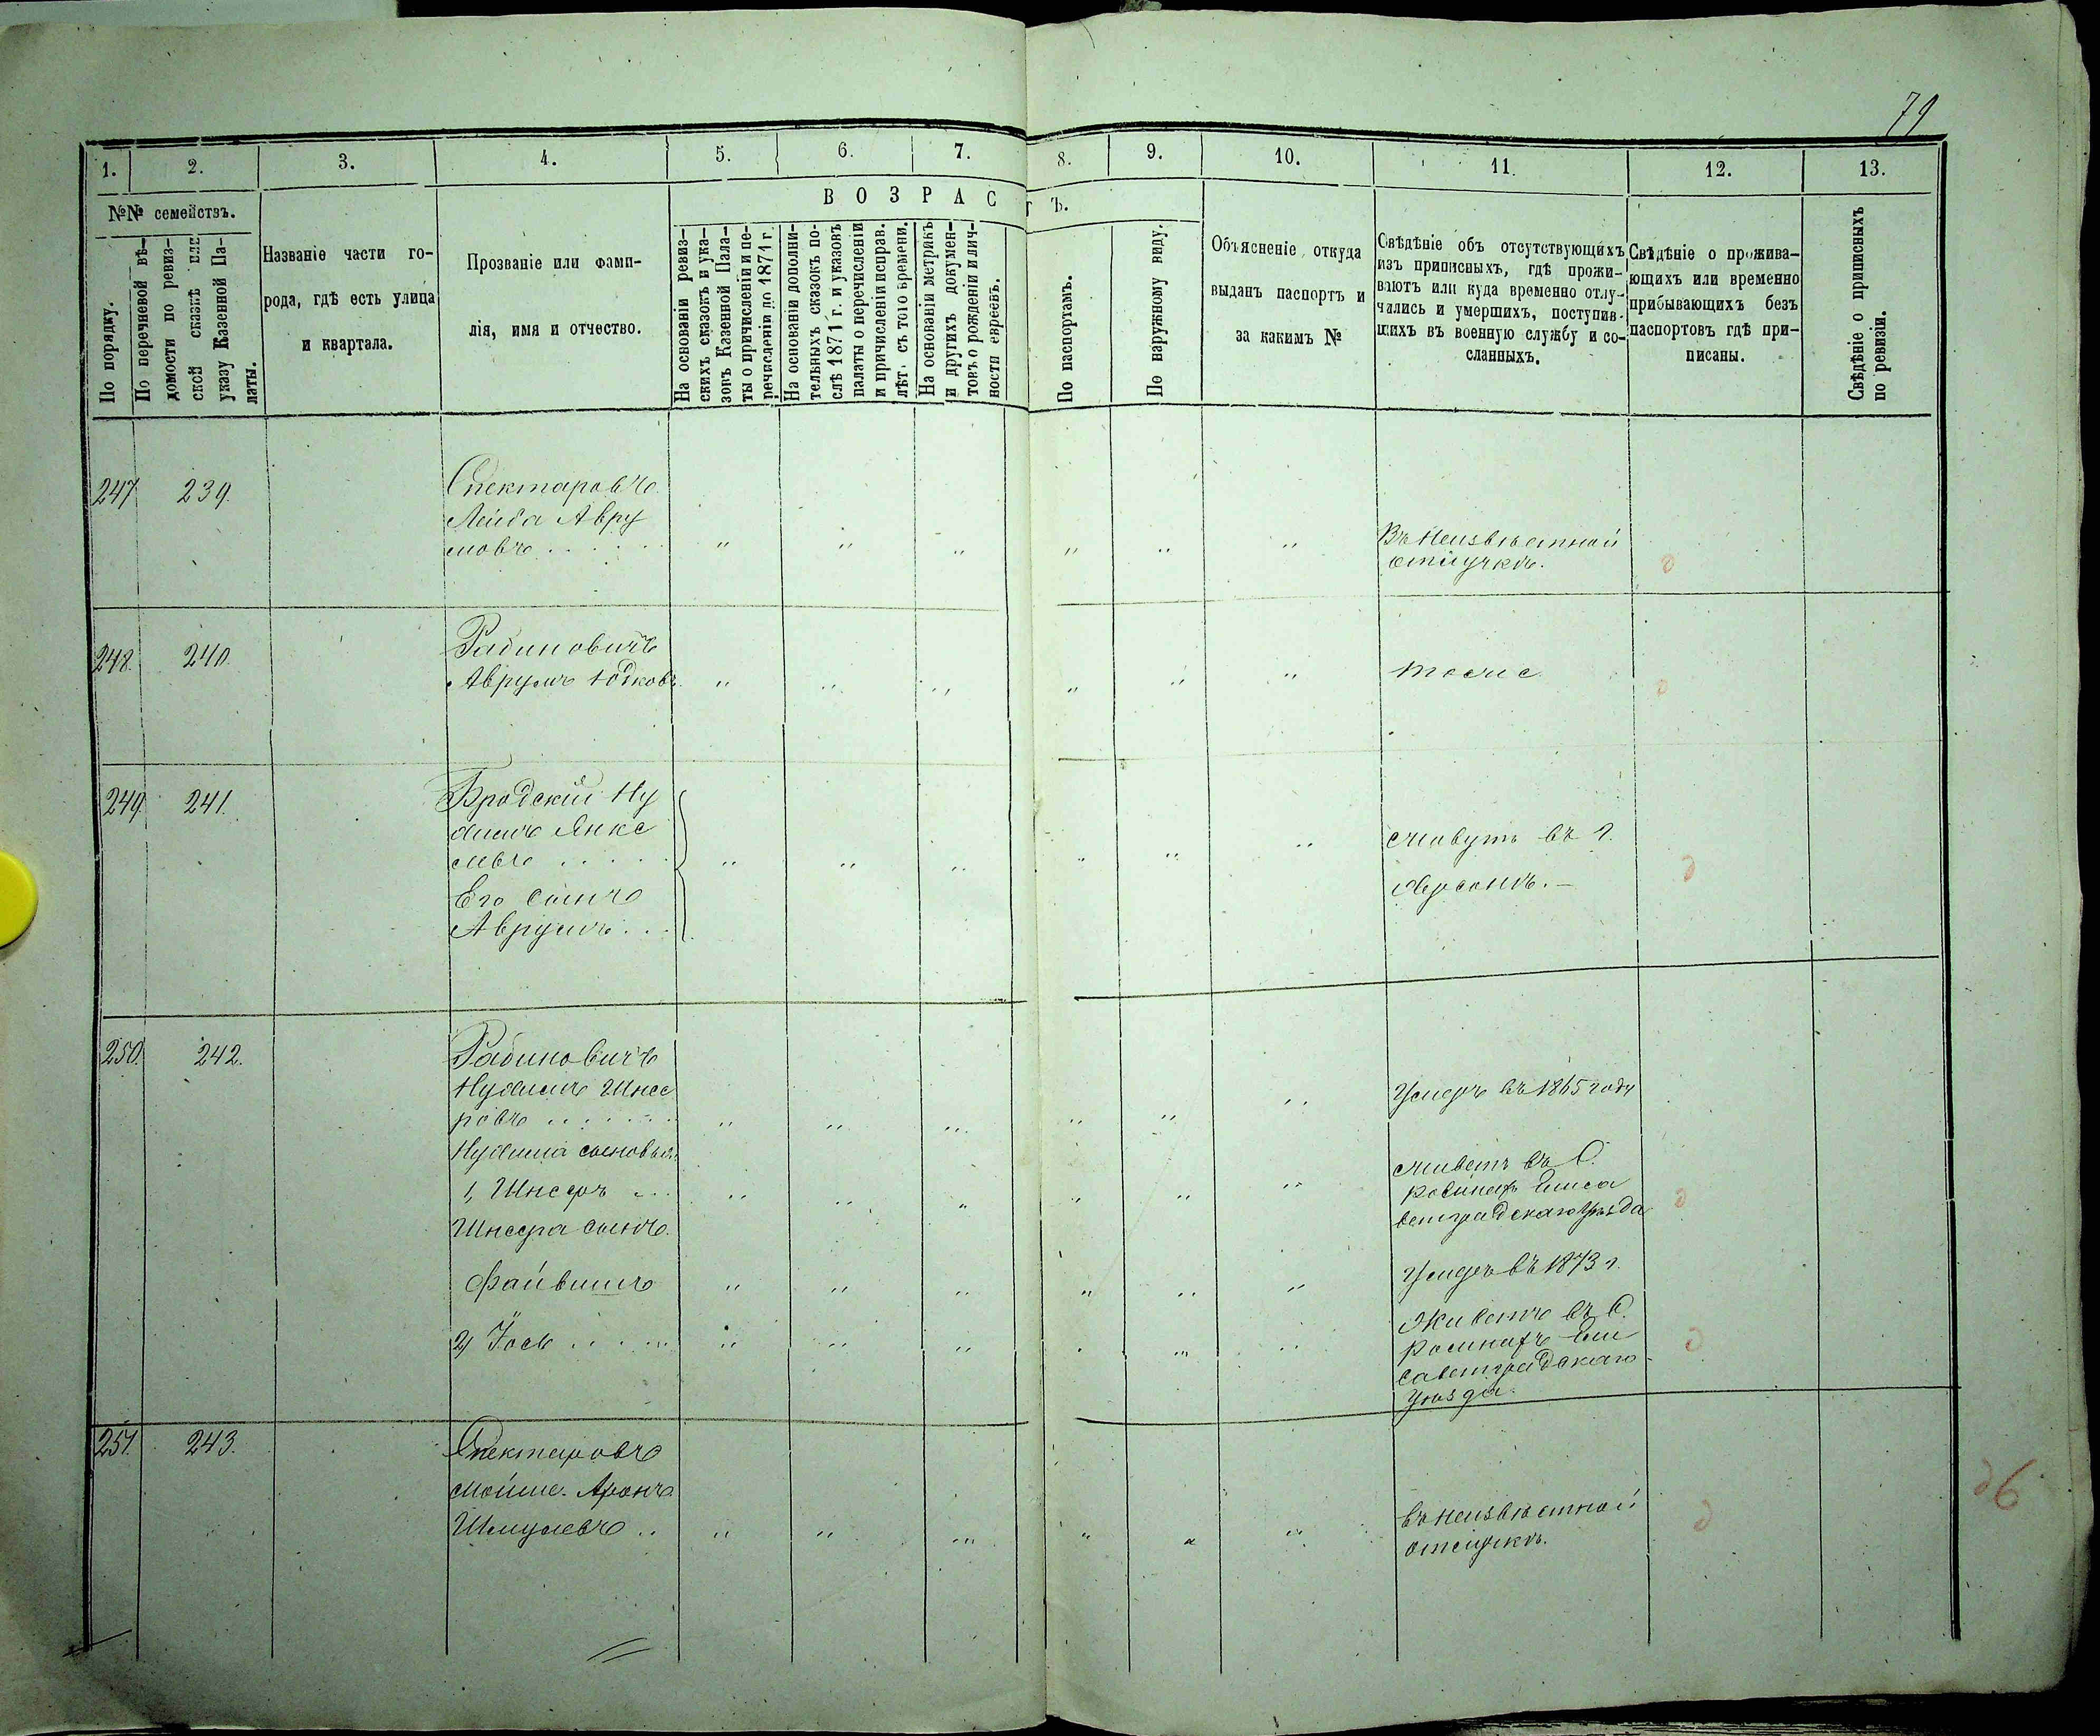 79
1. 2. 3. 4. 5. 6. 7. 8. 9. 10. 11. 12. 13.
№№ семействъ.
По порядку.
По перечневой вѣ-
домости по ревиз-
ской сказкѣ или
указу Казенной Па-
латы.
Названіе части го-
рода, гдѣ есть улица
и квартала.
Прозваніе или фами-
лія, имя и отчество.
ВОЗРАСТЪ.
На основаніи ревиз-
скихъ сказокъ и ука-
зокъ Казенной Пала-
ты о причисленіи и пе-
речисленіи до 1871 г.
На основаніи дополни-
тельныхъ сказокъ по-
слѣ 1871 г. и указовъ
палаты о перечисленіи
и причисленіи исправ.
лѣт. съ того времени.
На основаніи метрикъ
и другихъ докумен-
товъ о рожденіи и лич-
ности евреевъ.
По паспортамъ.
По наружному виду.
Объясненіе, откуда
выданъ паспортъ и
за какимъ №
Свѣдѣніе объ отсутствующихъ
изъ приписныхъ, гдѣ прожи-
ваютъ или куда временно отлу-
чились и умершихъ, поступив-
шихъ въ военную службу и со-
сланныхъ.
Свѣдѣніе о прожива-
ющихъ или временно
прибывающихъ безъ
паспортовъ гдѣ при-
писаны.
Свѣдѣніе о приписныхъ
по ревизіи.
247 239.
Спектаровъ
Лейба Авру
мовъ . . . . . .
Въ Неизвѣстной
отлучкѣ.
248. 240.
Рабиновичъ
Аврумъ Юдковъ.
тоже
249 241.
Бродскій Ну
химъ Янке
левъ . . . . .
Его сынъ
Аврумъ . . .
живутъ въ г.
Херсонѣ. —
250. 242.
Рабиновичъ
Нухимъ Шнее
ровъ . . . . . .
Нухима сыновья:
1, Шнееръ . . .
Шнеера сынъ
Файвишъ
2, Іось . . . . . .
Умеръ въ 1865 году
живетъ въ С.
Елиса
ветградскаго Уѣзда
Умеръ въ 1873 г.
Живетъ въ С.
Ели
саветградскаго
Уѣзда.
251. 243.
Спектаровъ
Мойше-Аронъ
Шмулевъ . .
въ неизвѣстной
отлучкѣ.